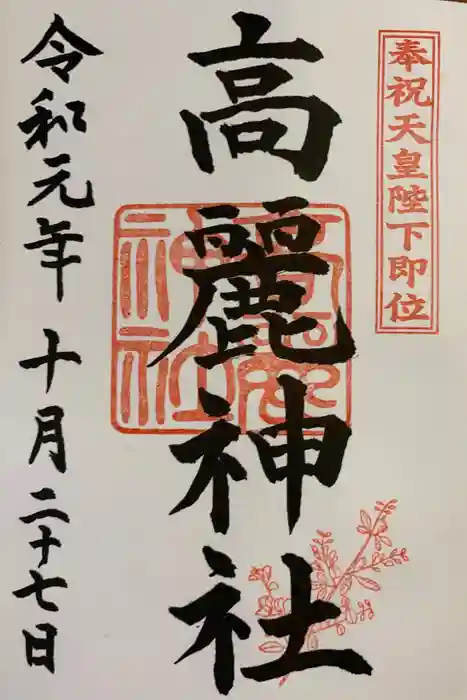 奉祝天皇陛下即位
高麗神社
令和元年十月二十七日
高麗神社